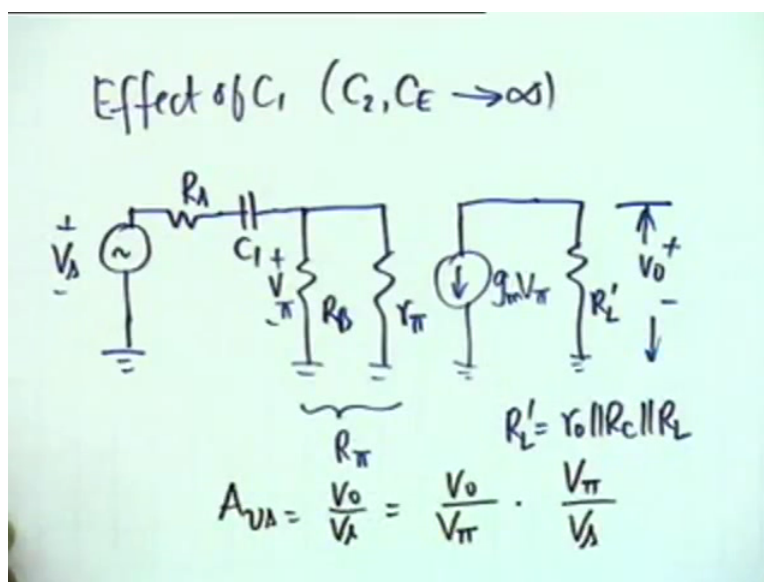 Effect of C₁ (C₂, C_E → ∞)
R_s
C₁
+
V_s
-
~
+
V_π
-
R_B
r_π
g_m V_π
R_L'
+
V_o
-
R_π
R_L' = r_o || R_C || R_L
A_vs = V_o/V_s = V_o/V_π · V_π/V_s